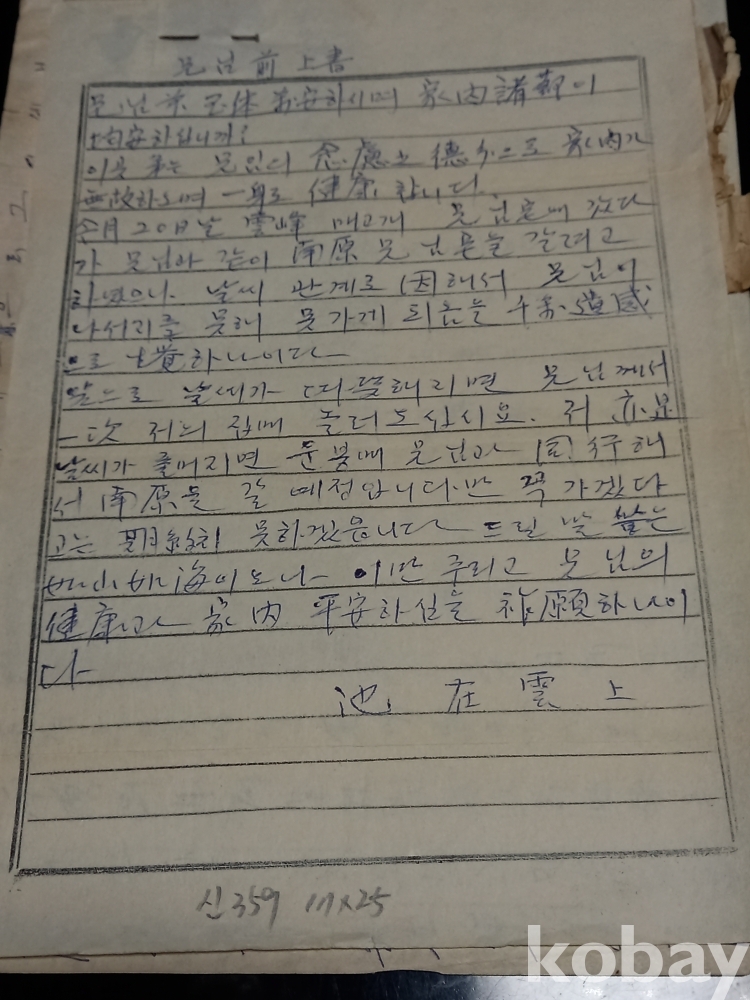 兄님前上書
兄님 玉体 安하시며 家內諸節이
均安하십니까?
이곳 弟는 兄님의 念慮之德分으로 家內가
無故하오며 一身도 健康합니다.
今月 20日날 雲峰 매고개 兄님宅에 갔다
가 兄님과 같이 南原 兄님宅을 갈려고
하였으나 날씨 관계로 因해서 兄님이
나서지를 못해 못가게 되옴을 遺感
으로 生覚하나이다
앞으로 날씨가 따뜻해지면 兄님께서
一次 저의 집에 놀러오십시요. 저 亦是
날씨가 풀어지면 운봉에 兄님과 同行해
서 南原을 갈 예정입니다만 꼭 가겠다
고는 못하겠읍니다 드릴 말 쌀는
如山如海이오나 이만 주리고 兄님의
健康과 家內 平安하심을 祚願하나이
다
池 在 雲 上
신359 17×25
kobay